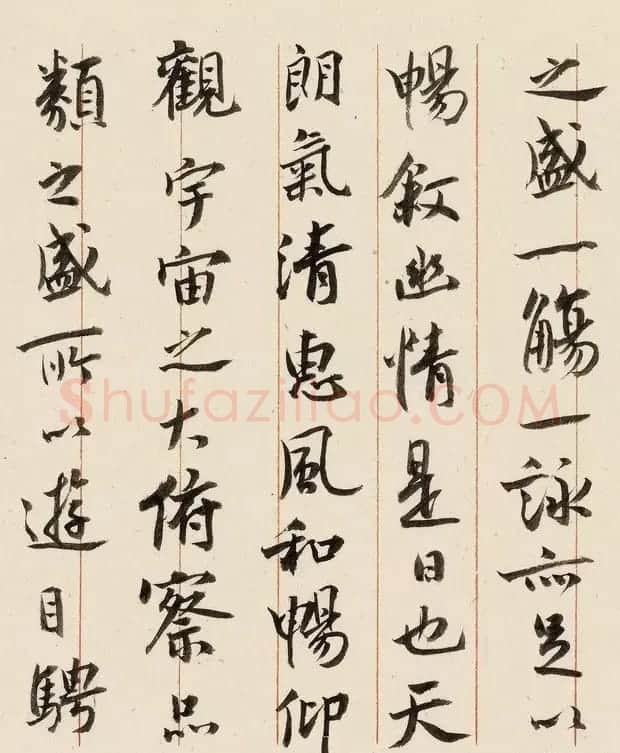 之盛一觴一詠亦足以
暢叙幽情是日也天
朗氣清惠風和暢仰
觀宇宙之大俯察品
類之盛所以遊目騁
Shufaziliao.COM